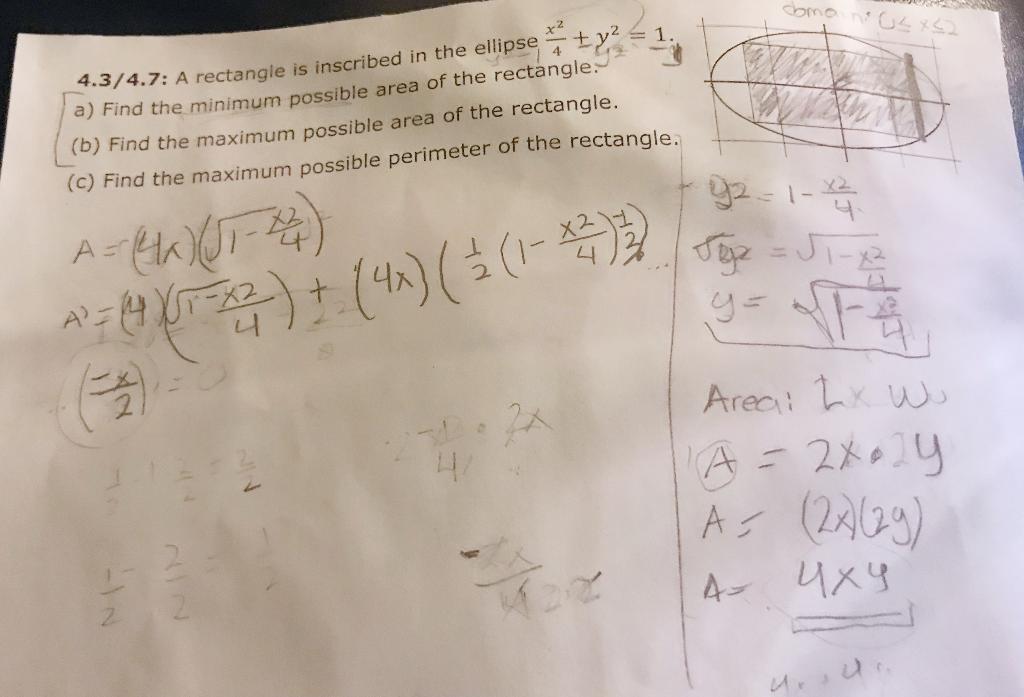 domain: 0 ≤ x ≤ 2
4.3/4.7: A rectangle is inscribed in the ellipse x²/4 + y² = 1.
a) Find the minimum possible area of the rectangle.
(b) Find the maximum possible area of the rectangle.
(c) Find the maximum possible perimeter of the rectangle.
A = (4x)(√1-x2/4)
A' = (4)(√1-x2/4) + (4x)(1/2(1-x2/4)^-1/2...
(-x/2) = 0
1/2 - 2/2 =
-2x/4
y2 = 1 - x2/4
√y2 = √1-x2/4
y = √1-x2/4
Area: L x W
A = 2x • 2y
A = (2x)(2y)
A = 4xy